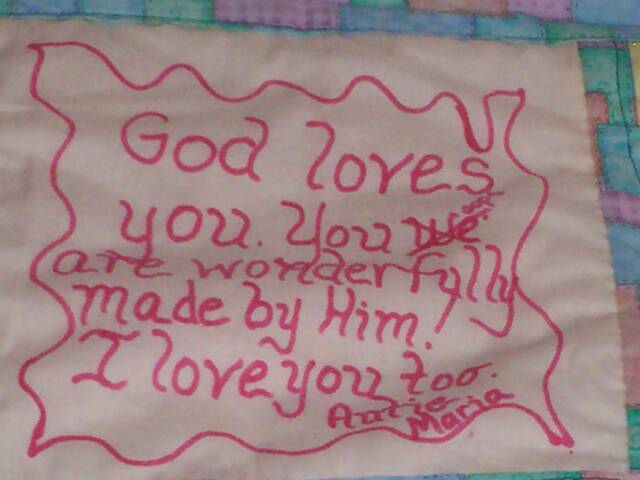 God loves
you. You
are wonderfully
made by Him!
I love you too.
Autie
Maria